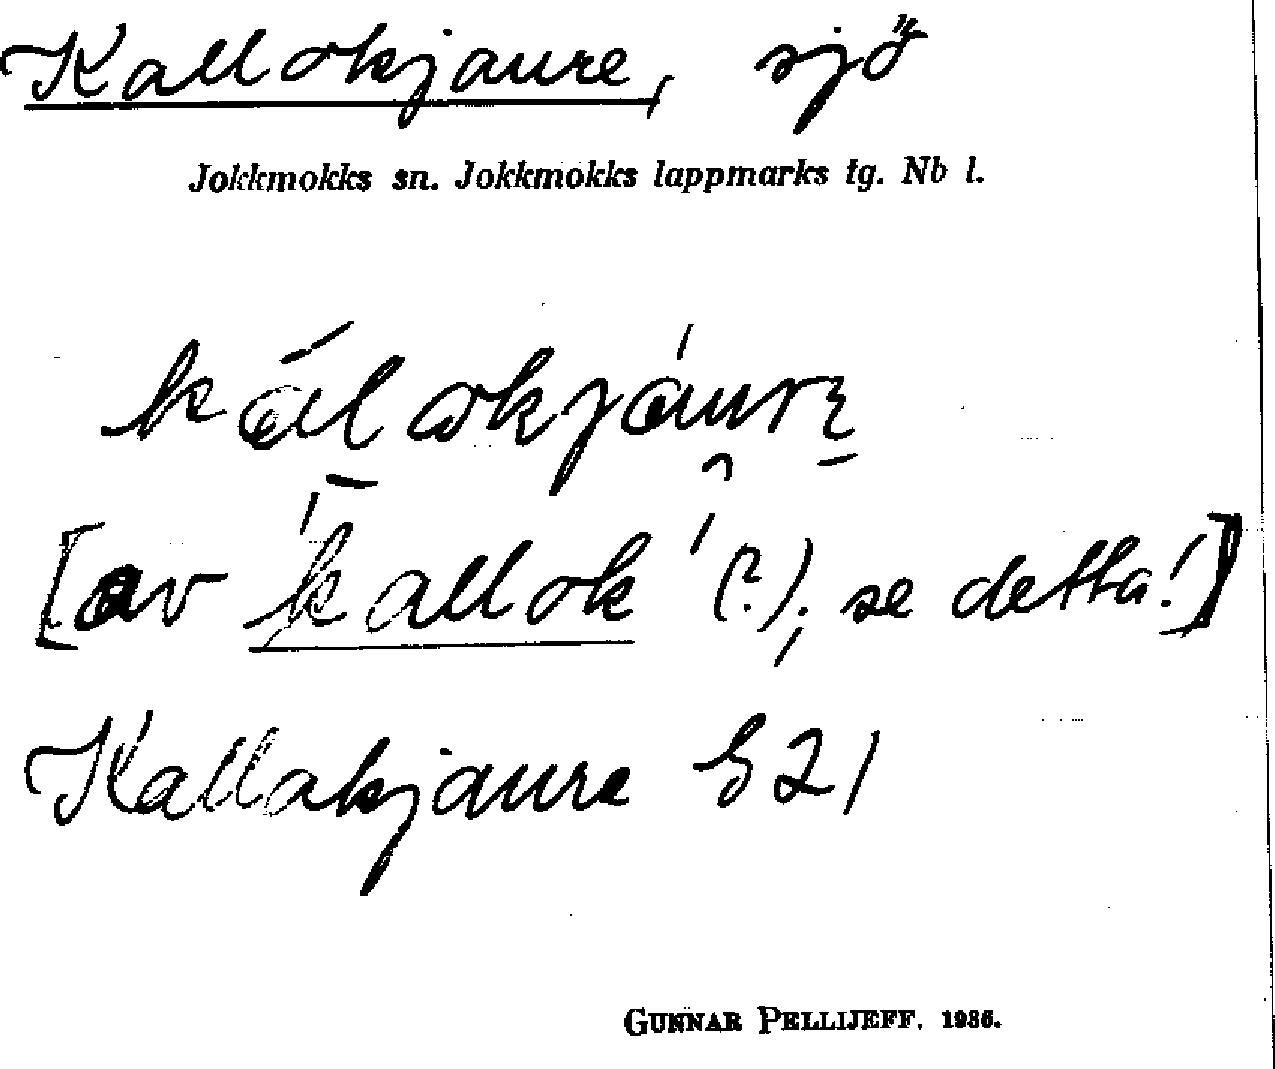 Kallokjaure, sjö
Jokkmokks sn. Jokkmokks lappmarks tg. Nb l.
kálokjáurę
[av kallok '(?)'; se detta!]
Kallakjaure G21
GUNNAR PELLIJEFF. 1936.